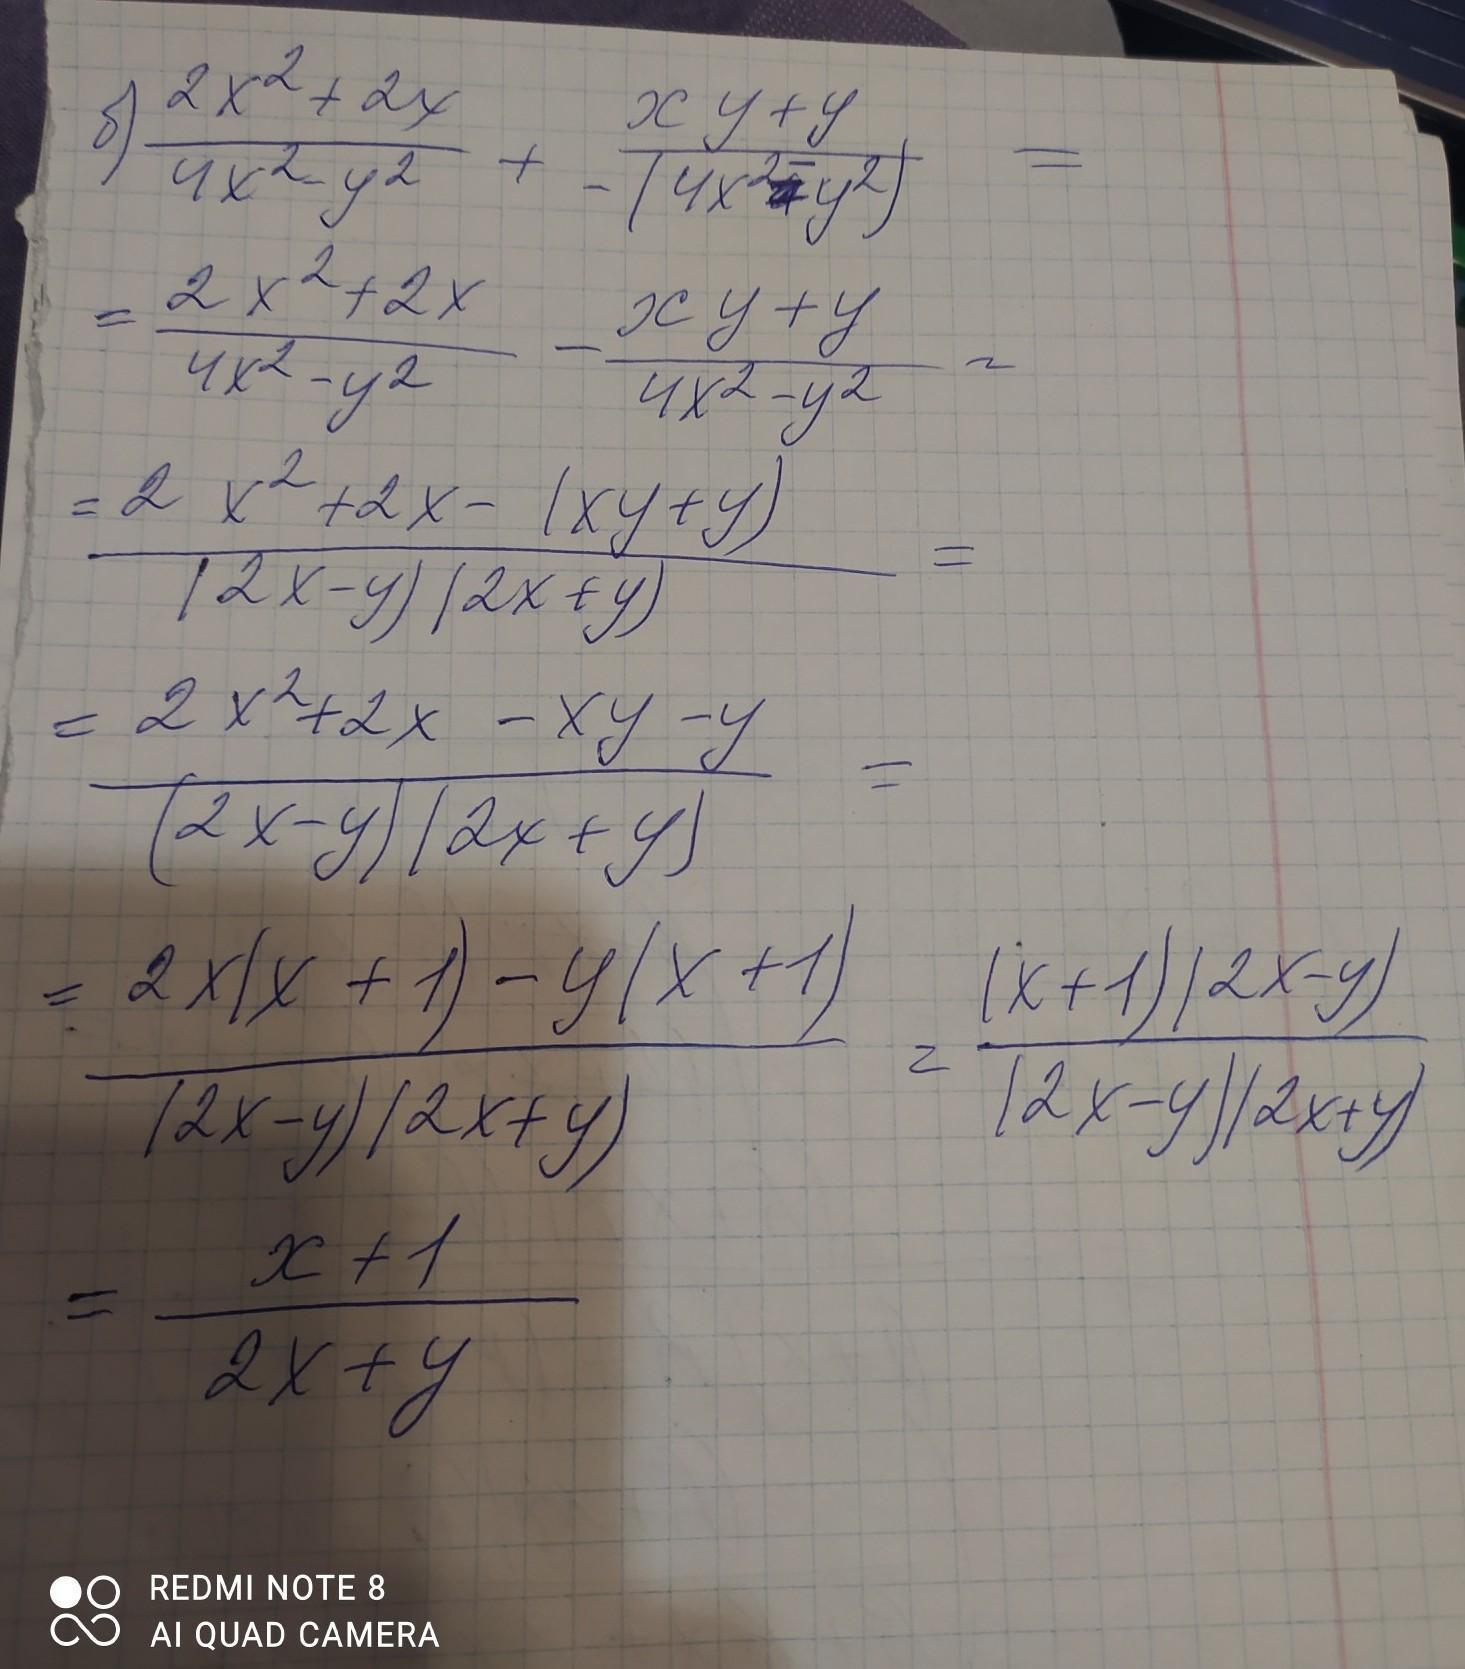 б) (2x²+2x)/(4x²-y²) + (xy+y)/(-(4x²-y²)) =
= (2x²+2x)/(4x²-y²) - (xy+y)/(4x²-y²) =
= (2x²+2x-(xy+y))/((2x-y)(2x+y)) =
= (2x²+2x-xy-y)/((2x-y)(2x+y)) =
= (2x(x+1)-y(x+1))/((2x-y)(2x+y)) = ((x+1)(2x-y))/((2x-y)(2x+y))
= (x+1)/(2x+y)
REDMI NOTE 8
AI QUAD CAMERA